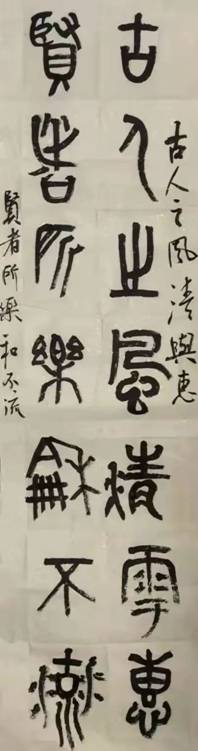 古人之風清雩惠
古人之風清與惠
賢者所樂龢不流
賢者所樂和不流